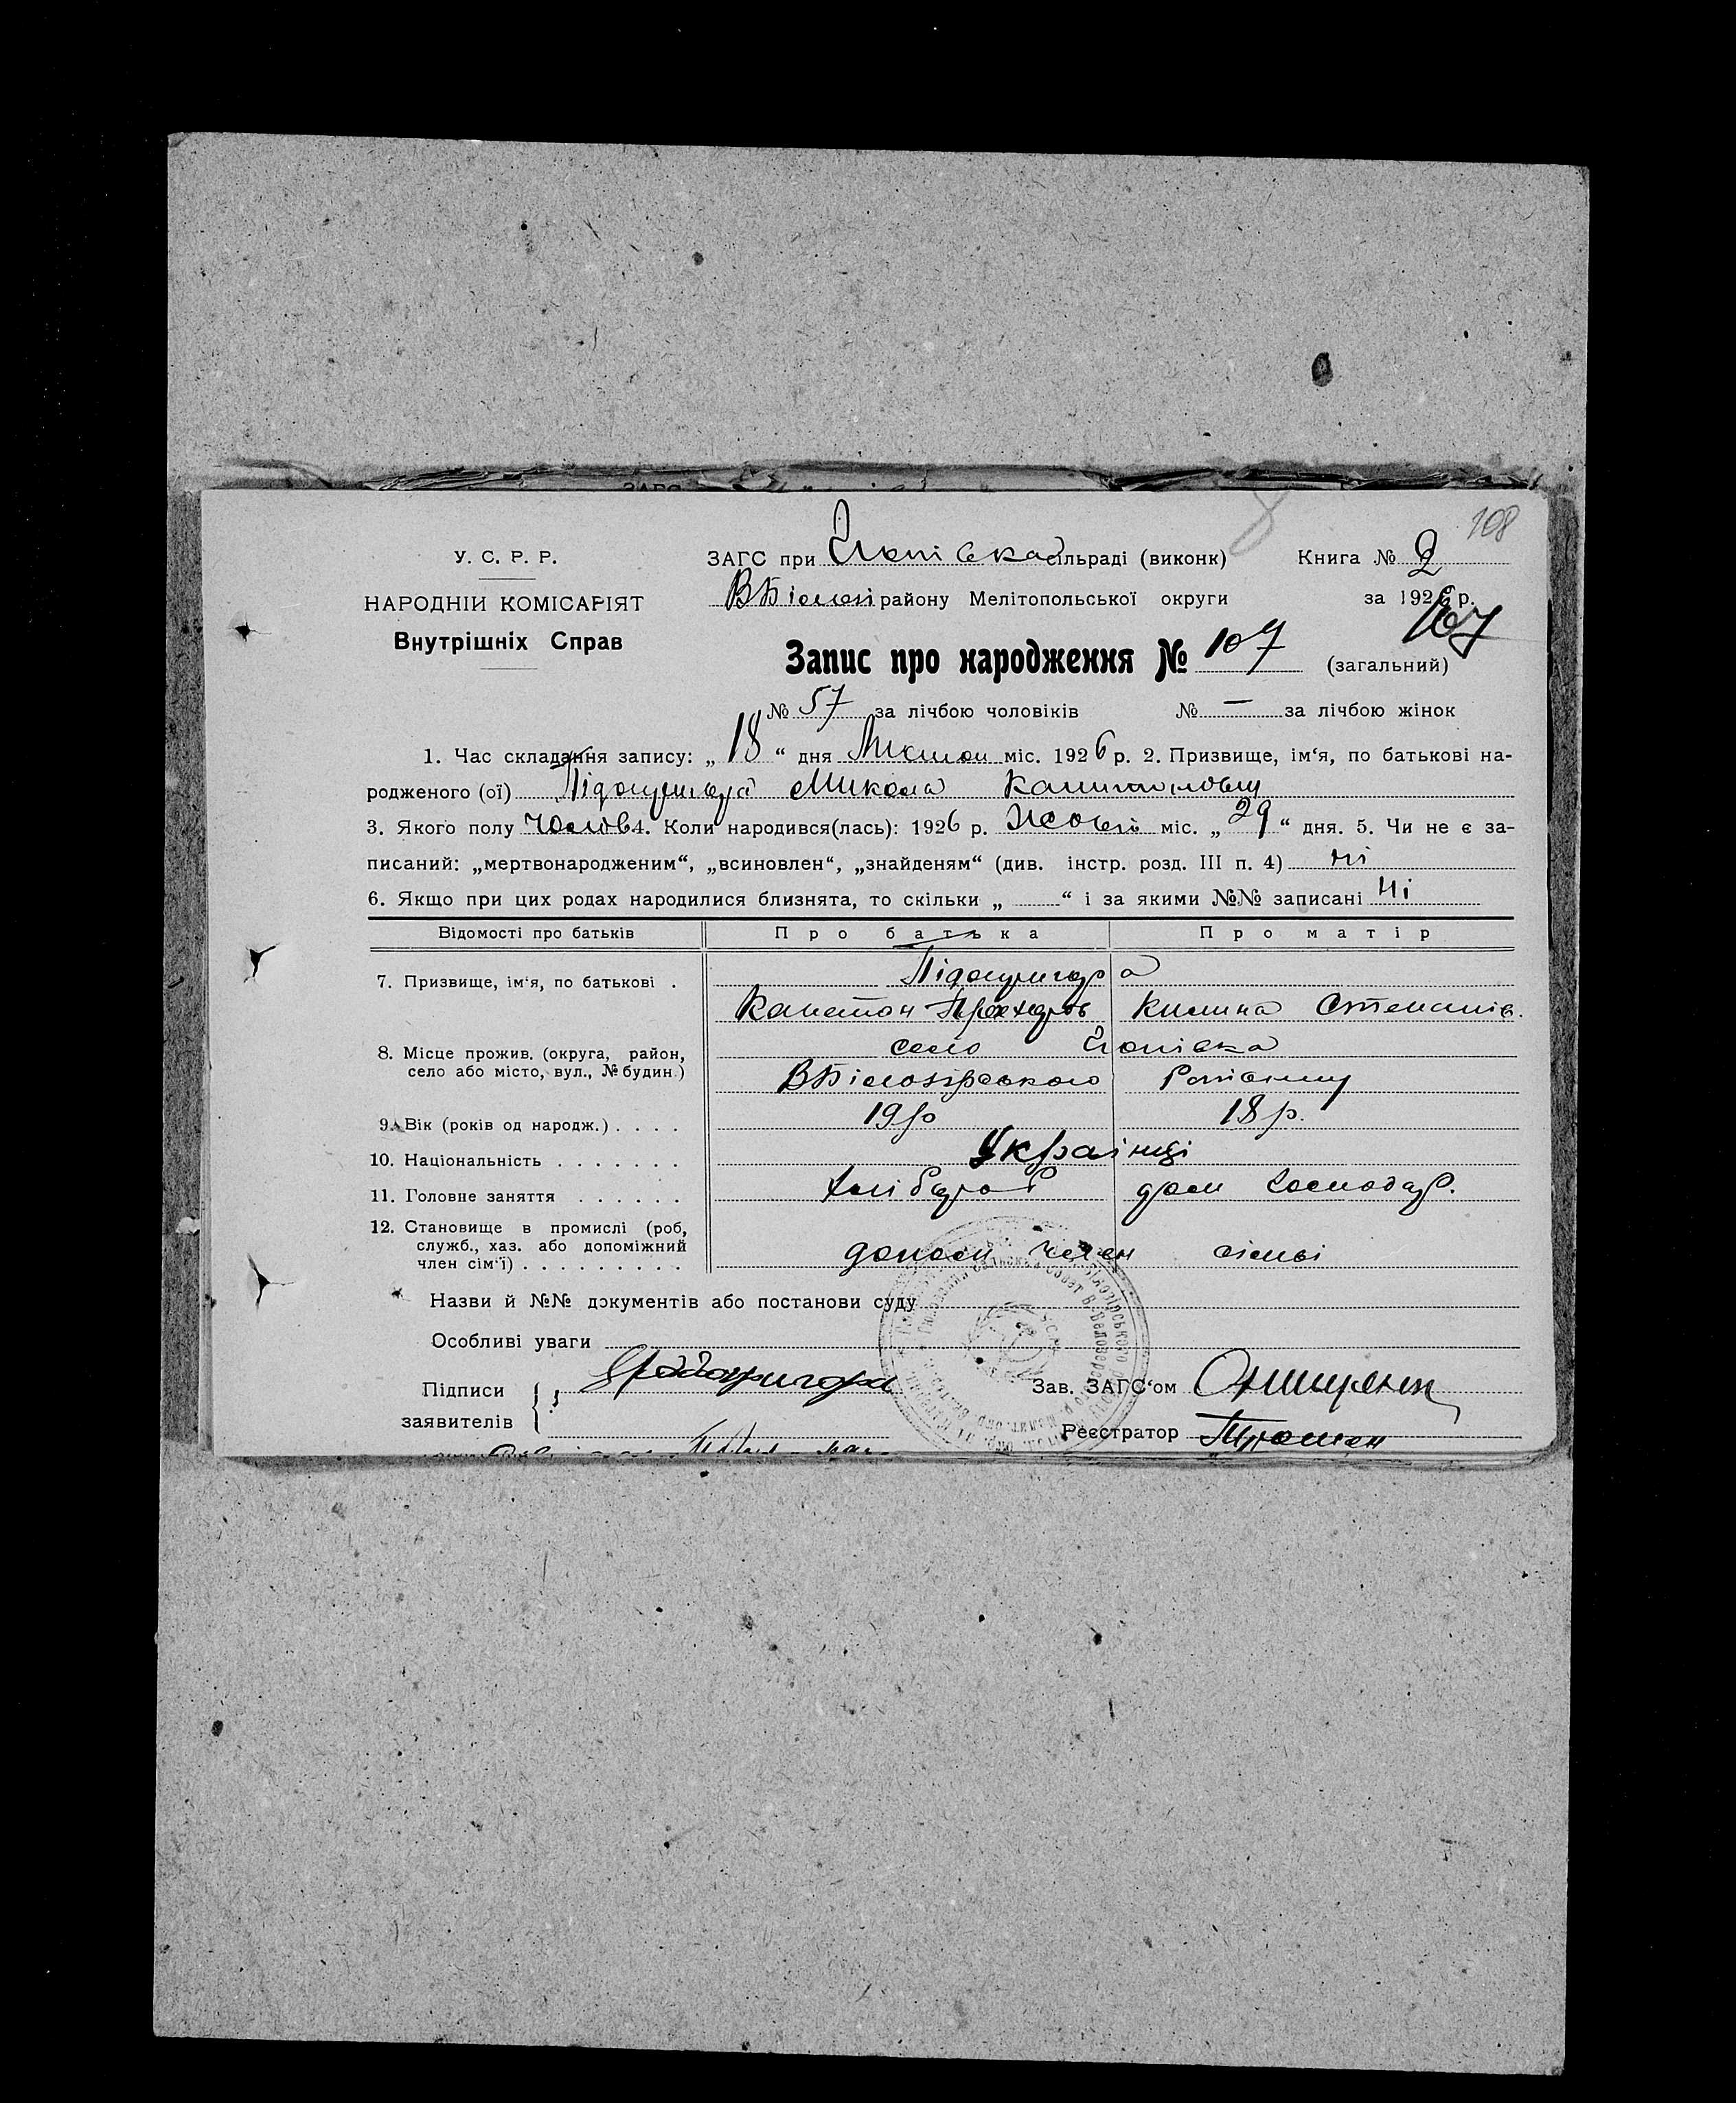 108
У. С. Р. Р.
ЗАГС при сільраді (виконк)
Книга № 2
НАРОДНІЙ КОМІСАРІЯТ
району Мелітопольської округи
за 1926 р.
Внутрішніх Справ
107
Запис про народження № 107 (загальний)
№ 57 за лічбою чоловіків № — за лічбою жінок
1. Час складання запису: „18“ дня Листоп міс. 1926 р. 2. Призвище, ім‘я, по батькові на-
родженого (ої) Підопригора Микола Капитонович
3. Якого полу Чолов 4. Коли народився(лась): 1926 р. Жовтн міс. „29“ дня. 5. Чи не є за-
писаний: „мертвонародженим“, „всиновлен“, „знайденям“ (див. інстр. розд. III п. 4) ні
6. Якщо при цих родах народилися близнята, то скільки „ “ і за якими №№ записані ні
Відомості про батьків
Про батька
Про матір
7. Призвище, ім‘я, по батькові .
Підопригора
Капетон Прохоров
Килина Степанів.
8. Місце прожив. (округа, район,
село або місто, вул., № будин.)
село
ВБілозірського
9. Вік (років од народж.) . . . .
19 р
18 р.
10. Національність . . . . . . .
Українці
11. Головне заняття . . . . . .
Хлібороб
дом господар.
12. Становище в промислі (роб,
служб., хаз. або допоміжний
член сім‘ї) . . . . . . . . .
допом член сімьі
Назви й №№ документів або постанови суду
Особливі уваги
Підписи
заявителів
Зав. ЗАГС‘ом
Реєстратор